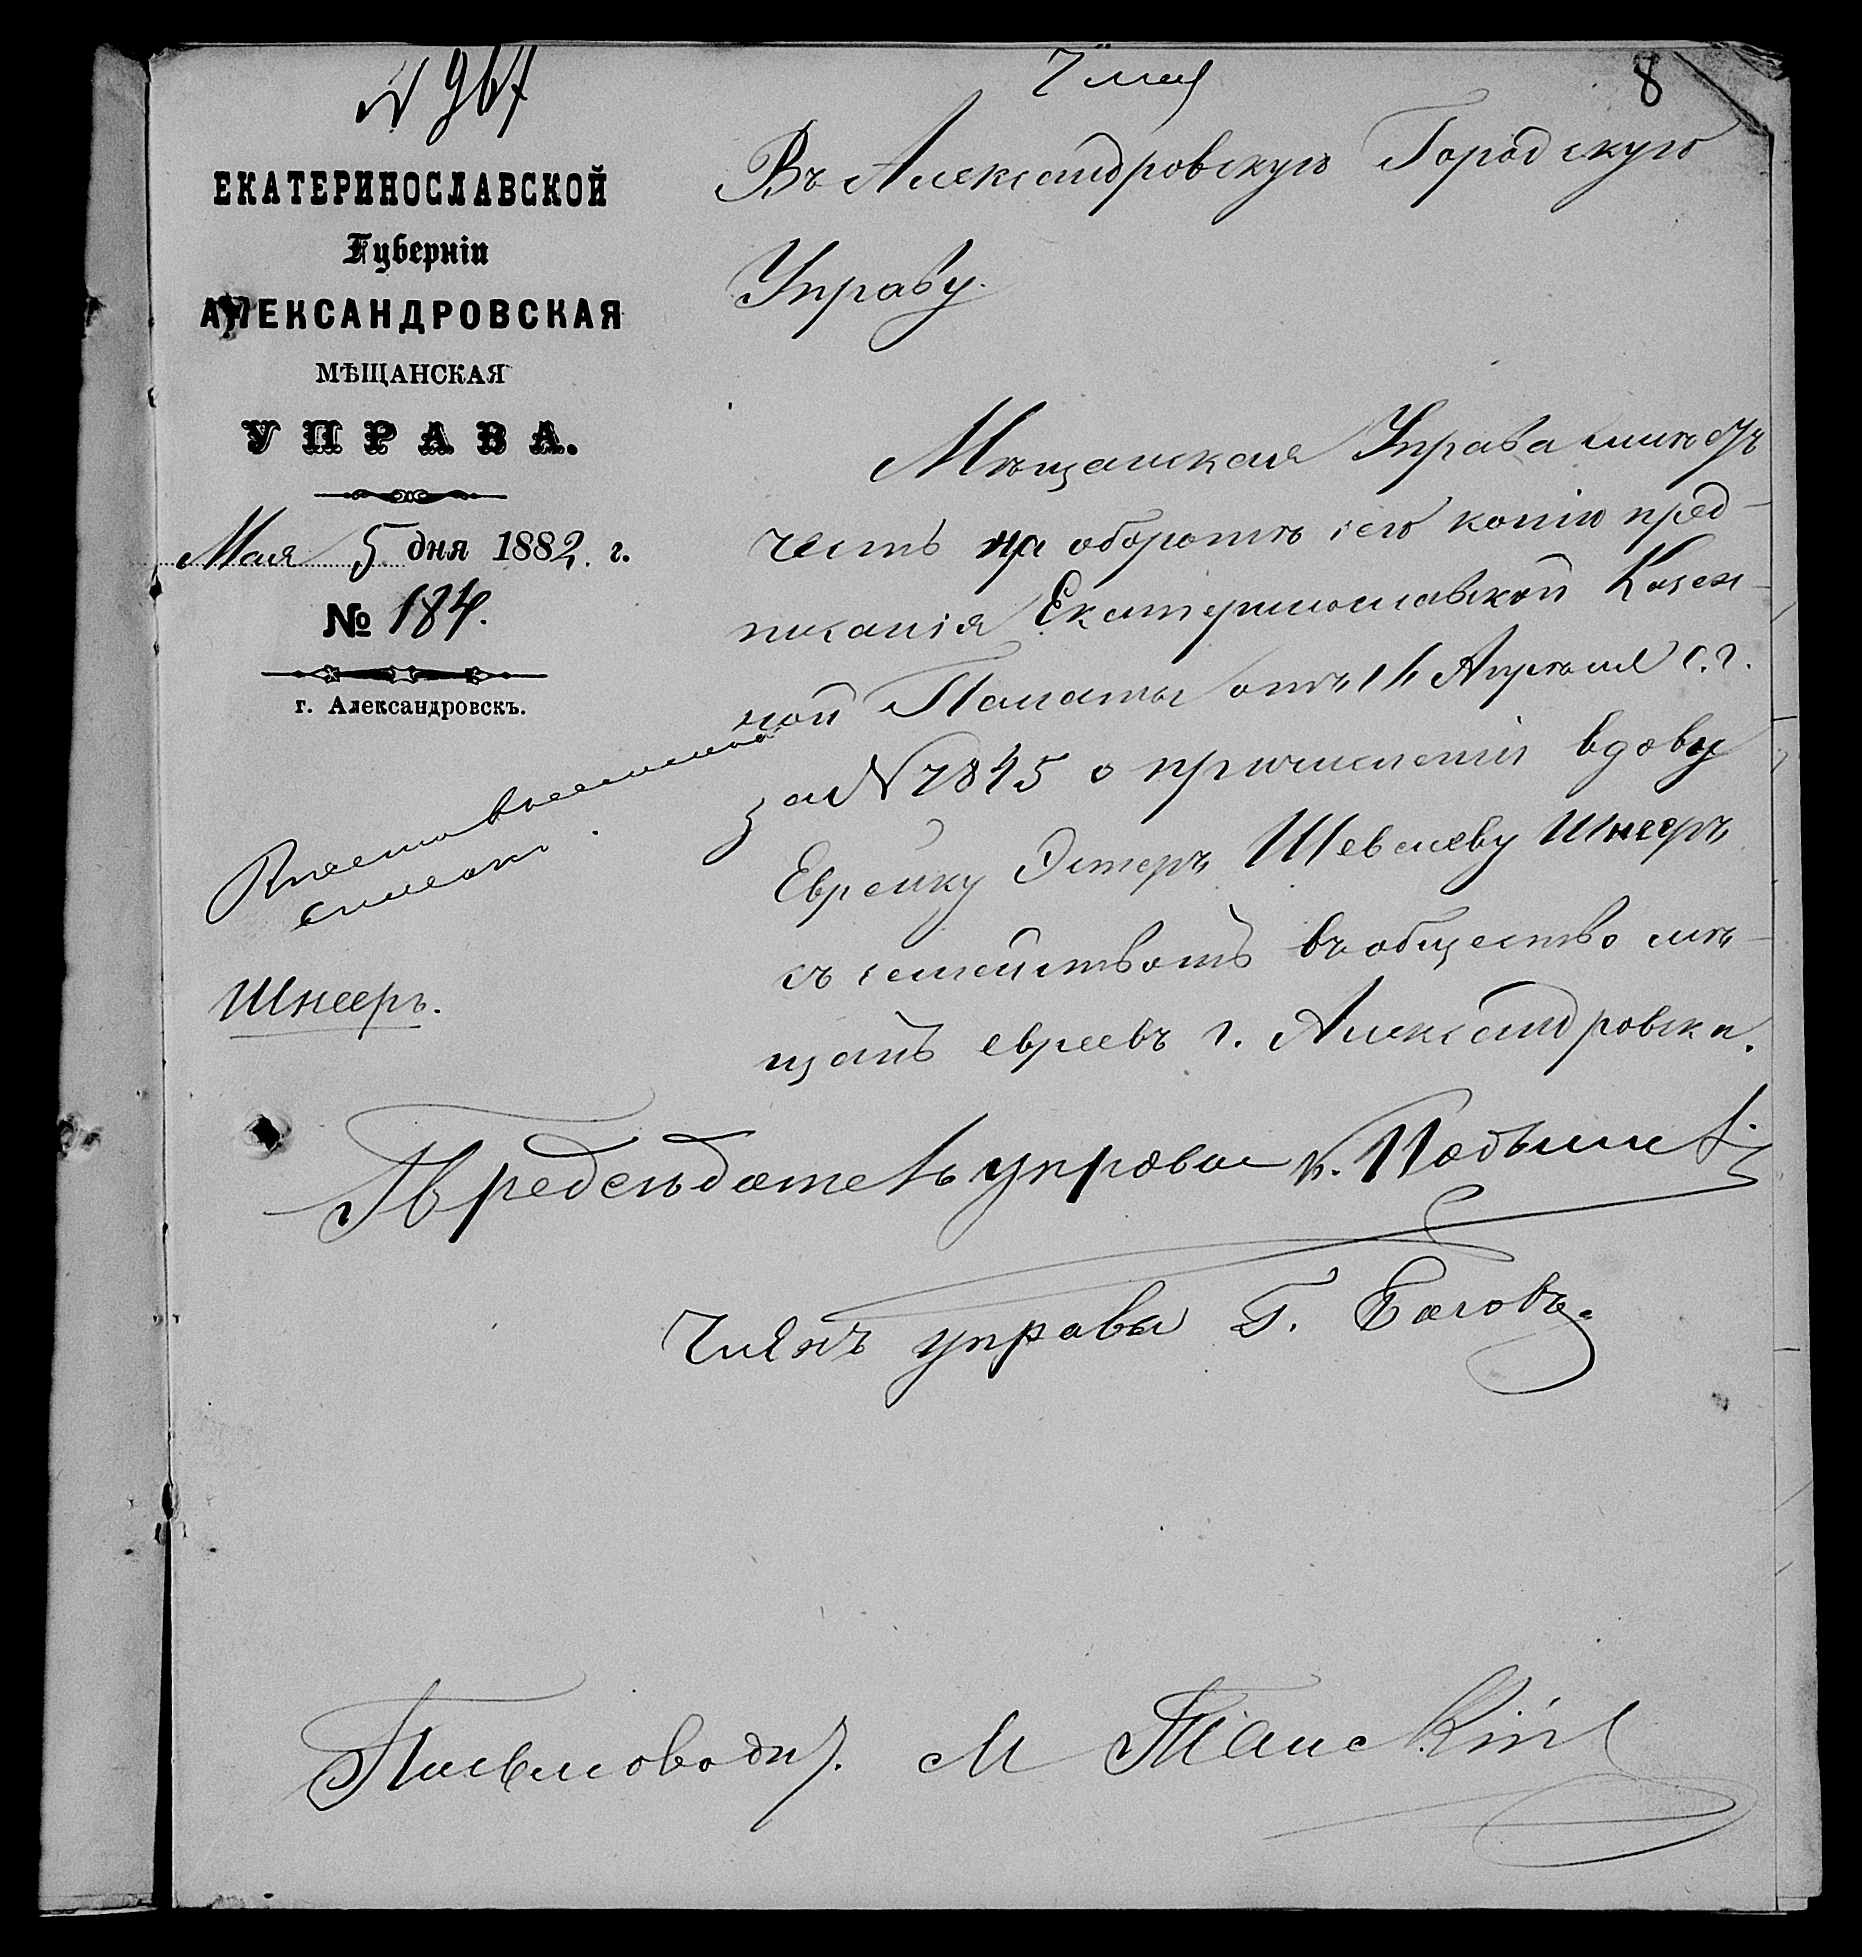 N 967
7 мая
8
ЕКАТЕРИНОСЛАВСКОЙ
Губерніи
АЛЕКСАНДРОВСКАЯ
МѢЩАНСКАЯ
УПРАВА.
Мая 5 дня 1882 г.
№ 184.
г. Александровскъ.
Въ Александровскую Городскую
Управу.
Мѣщанская Управа имѣетъ
честь на оборотѣ сего копію пред-
писанія Екатеринославской Казен-
ной Палаты отъ 14 Апрѣля с.г.
за N 7845 о причисленіи вдову
Еврейку Эстеръ Шевелеву Шнееръ
съ семействомъ въ общество мѣ-
щанъ евреевъ г. Александровска.
Шнееръ.
Предсѣдатель управы
Членъ управы Г. Баговъ.
Письмовод.